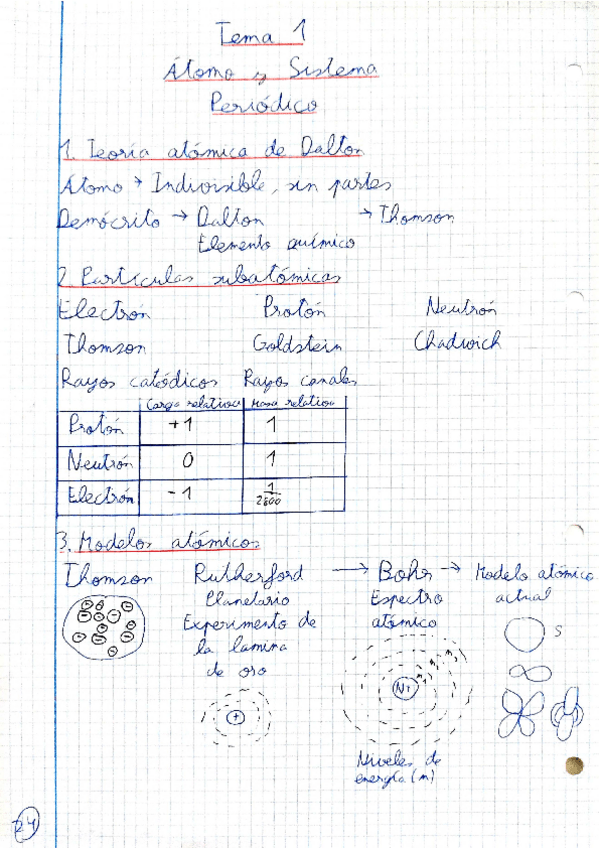 Tema 1
Átomo y Sistema
Periódico
1. Teoría atómica de Dalton
Átomo → Indivisible, sin partes
Demócrito → Dalton → Thomson
Elemento químico
2. Partículas subatómicas
Electrón Protón Neutrón
Thomson Goldstein Chadwich
Rayos catódicos Rayos canales
Carga relativa Masa relativa
Protón +1 1
Neutrón 0 1
Electrón -1 1/2800
3. Modelos atómicos
Thomson Rutherford → Bohr → Modelo atómico
Planetario Espectro actual
Experimento de atómico
la lamina
de oro
s
+
N+
Niveles de
energía (n)
24